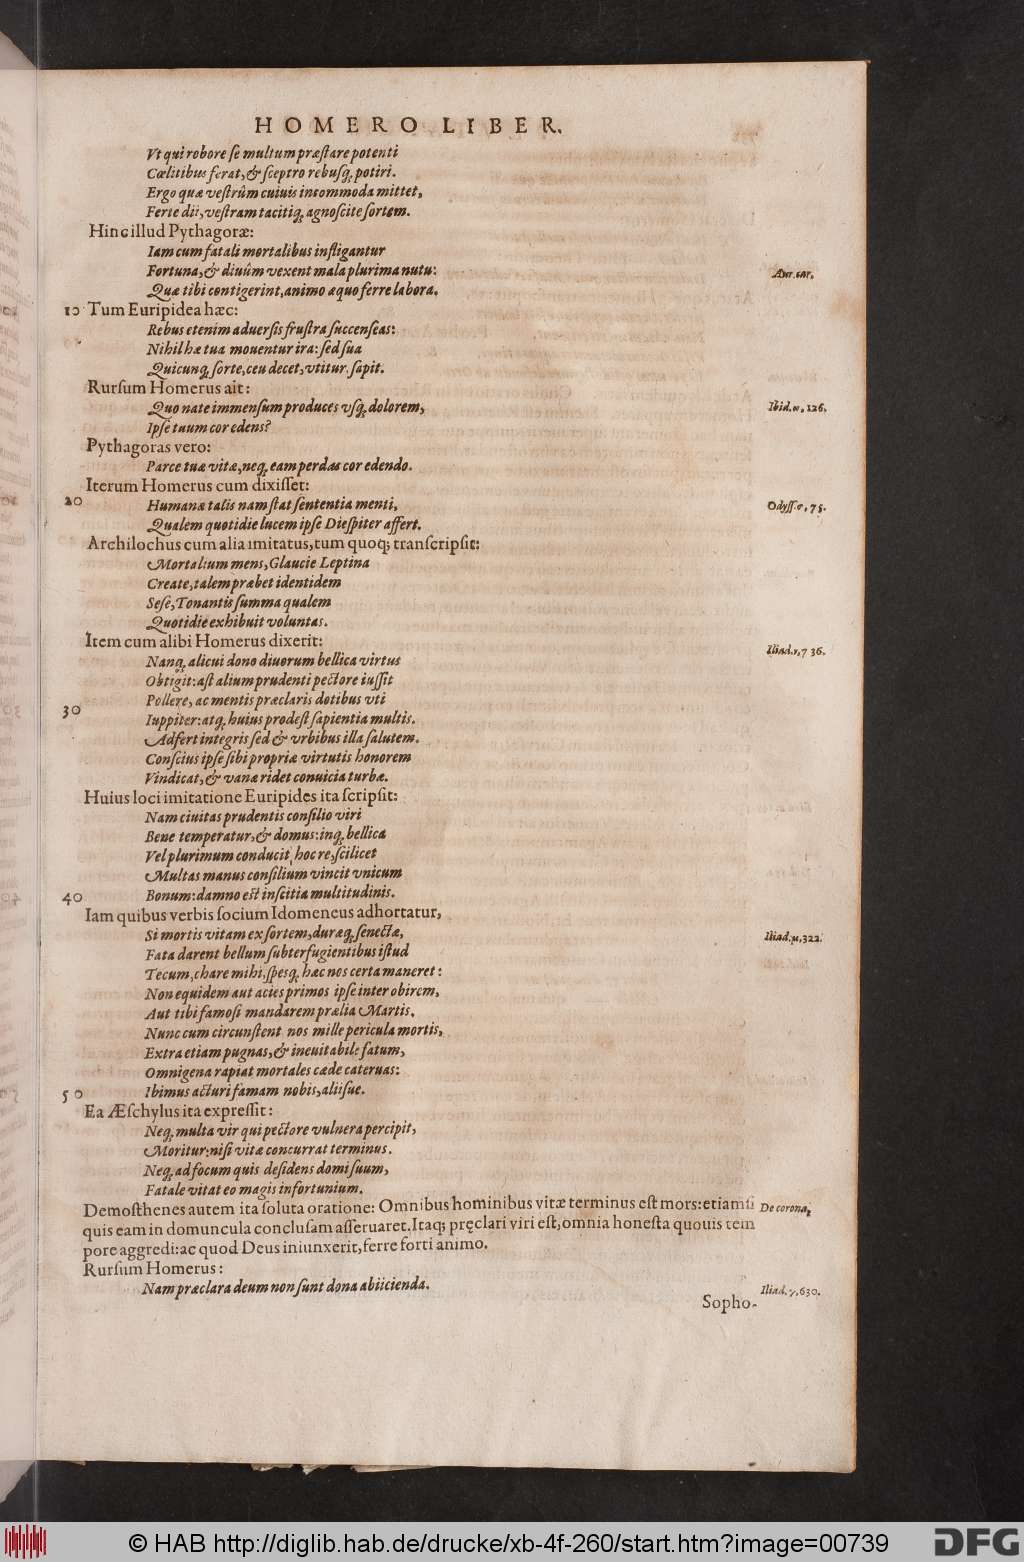 HOMERO LIBER.
Vt qui robore se multum præstare potenti
Cœlitibus ferat, & sceptro rebusq; potiri.
Ergo quæ vestrûm cuiuis incommoda mittet,
Ferte dii, vestram tacitiq; agnoscite sortem.
Hinc illud Pythagoræ:
Iam cum fatali mortalibus infligantur
Fortuna, & diuûm vexent mala plurima nutu:
Aur. car.
Quæ tibi contigerint, animo æquo ferre labora.
10 Tum Euripidea hæc:
Rebus etenim aduersis frustra succenseas:
Nihil hæ tua mouentur ira: sed sua
Quicunq; sorte, ceu decet, vtitur, sapit.
Rursum Homerus ait:
Quo nate immensum produces vsq; dolorem,
Ibid. ω, 126.
Ipse tuum cor edens?
Pythagoras vero:
Parce tuæ vitæ, neq; eam perdas cor edendo.
Iterum Homerus cum dixisset:
20 Humanæ talis nam stat sententia menti,
Odyss. σ, 75.
Qualem quotidie lucem ipse Diespiter affert.
Archilochus cum alia imitatus, tum quoq; transcripsit:
Mortalium mens, Glaucie Leptina
Create, talem præbet identidem
Sesè, Tonantis summa qualem
Quotidie exhibuit voluntas.
Item cum alibi Homerus dixerit:
Iliad. ν, 736.
Nanq; alicui dono diuorum bellica virtus
Obtigit: ast alium prudenti pectore iussit
Pollere, ac mentis præclaris dotibus vti
30 Iuppiter: atq; huius prodest sapientia multis.
Adfert integris sed & vrbibus illa salutem.
Conscius ipse sibi propriæ virtutis honorem
Vindicat, & vanæ ridet conuicia turbæ.
Huius loci imitatione Euripides ita scripsit:
Nam ciuitas prudentis consilio viri
Bene temperatur, & domus: inq; bellica
Vel plurimum conducit hoc re, scilicet
Multas manus consilium vincit vnicum
40 Bonum: damno est inscitia multitudinis.
Iam quibus verbis socium Idomeneus adhortatur,
Si mortis vitam ex sortem, duræq; senectæ,
Iliad. μ, 322.
Fata darent bellum subterfugientibus istud
Tecum, chare mihi, spesq; hæc nos certa maneret:
Non equidem aut acies primos ipse inter obirem,
Aut tibi famosi mandarem prælia Martis.
Nunc cum circunstent nos mille pericula mortis,
Extra etiam pugnas, & ineuitabile fatum,
Omnigena rapiat mortales cæde cateruas:
50 Ibimus acturi famam nobis, aliisue.
Ea Æschylus ita expressit:
Neq; multa vir qui pectore vulnera percipit,
Moritur: nisi vitæ concurrat terminus.
Neq; ad focum quis desidens domi suum,
Fatale vitat eo magis infortunium.
Demosthenes autem ita soluta oratione: Omnibus hominibus vitæ terminus est mors: etiamsi
De corona,
quis eam in domuncula conclusam asseruaret. Itaq; pręclari viri est, omnia honesta quouis tem
pore aggredi: ac quod Deus iniunxerit, ferre forti animo.
Rursum Homerus:
Nam præclara deum non sunt dona abiicienda.
Iliad. γ, 630.
Sopho-
© HAB http://diglib.hab.de/drucke/xb-4f-260/start.htm?image=00739
DFG